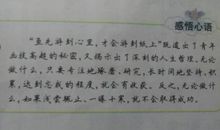 感悟心语
“画先游到心里，才会游到纸上”既道出了青年
画技高超的秘密，又揭示出了深刻的人生哲理，无论
做什么，只要专注地琢磨、研究，长时间地坚持，积
累，达到忘我的程度，就会有收获。反之，无论做什
么，如果浅尝辄止，一曝十寒，就不会取得成功。